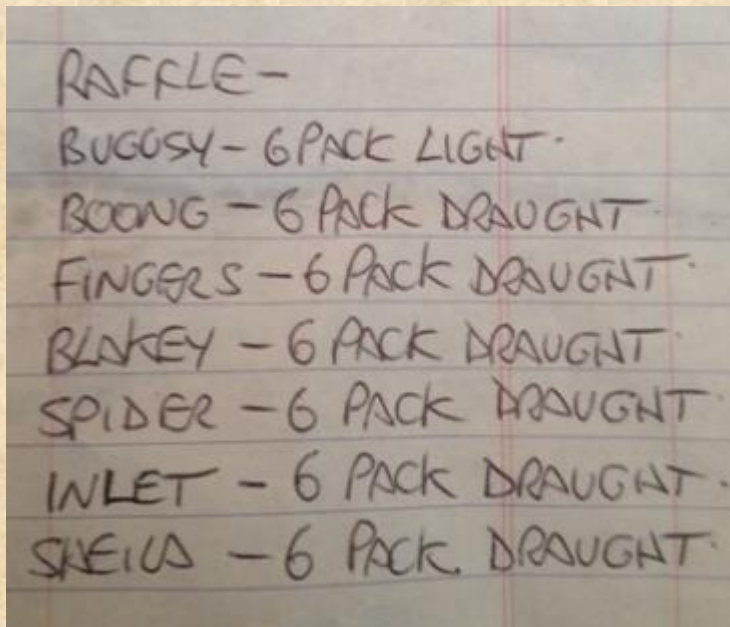 RAFFLE-
BUGGSY - 6 PACK LIGHT.
BOONG - 6 PACK DRAUGHT.
FINGERS - 6 PACK DRAUGHT.
BLAKEY - 6 PACK DRAUGHT.
SPIDER - 6 PACK DRAUGHT.
INLET - 6 PACK DRAUGHT.
SHEILA - 6 PACK. DRAUGHT.